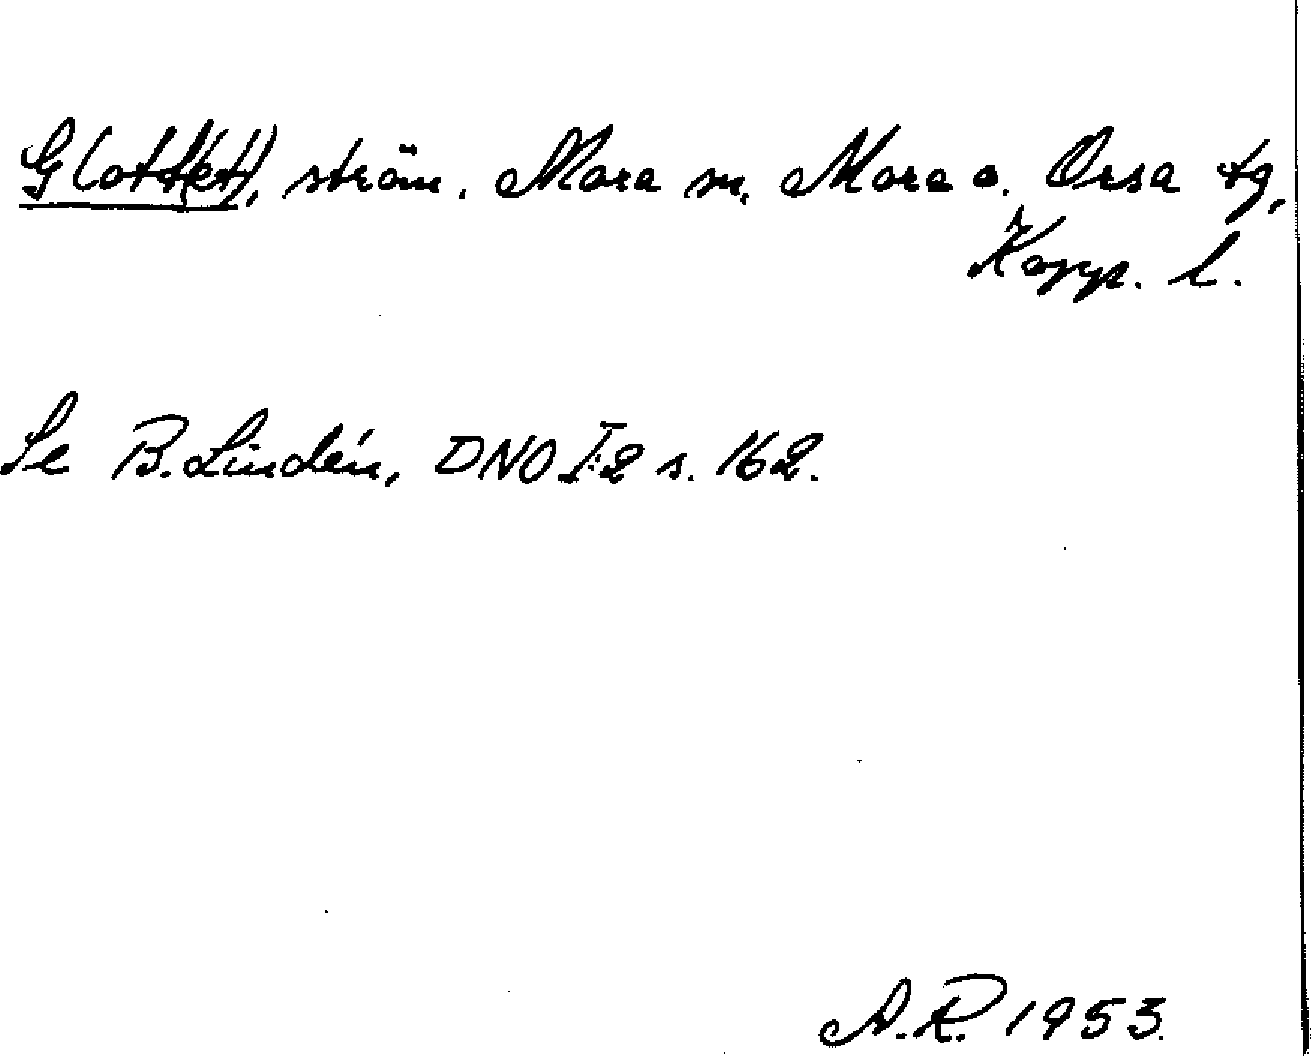 Glott(et), ström. Mora sn, Mora o. Orsa tg,
Kopp. l.
Se B. Lindén, DNO I:2 s. 162.
A.R. 1953.